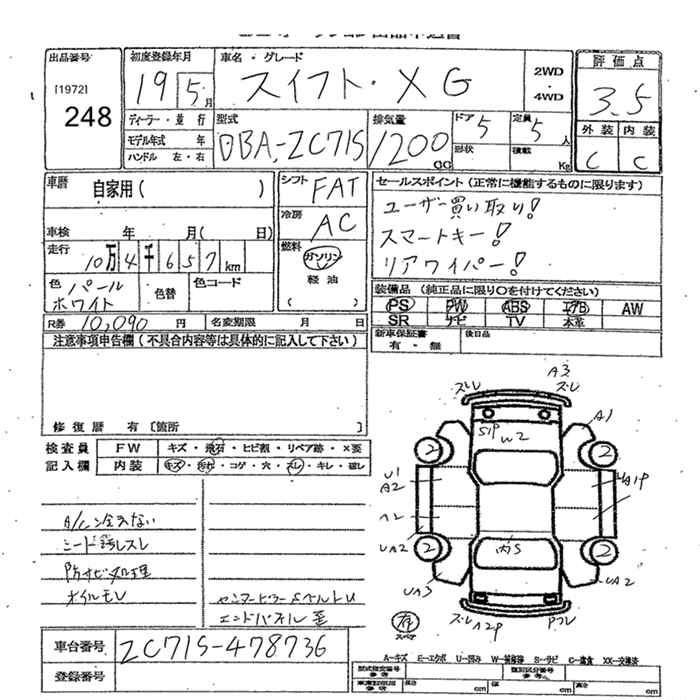 出品番号
[1972]
248
初度登録年月
19 5月
車名・グレード
スイフト・XG
2WD
・
4WD
評価点
3.5
外装 内装
C C
ディーラー・並行
モデル年式 年
ハンドル 左・右
型式
DBA-ZC71S
排気量
1200
CC
ドア
5
定員
5人
形状
積載
Kg
車歴
自家用( )
車検 年 月( 日)
走行
10万4千657km
色 パール
ホワイト
色替
色コード
シフト
FAT
冷房
AC
燃料
ガソリン
軽油
( )
セールスポイント (正常に機能するものに限ります)
ユーザー買い取り!
スマートキー!
リアワイパー!
装備品 (純正品に限り○を付けてください)
PS PW ABS エアB AW
SR ナビ TV 本革
新車保証書
有・無
後日品
R券 10,090 円
名変期限 月 日
注意事項申告欄(不具合内容等は具体的に記入して下さい)
修復歴 有 [箇所 ]
検査員
記入欄
FW キズ・飛石・ヒビ割・リペア跡・×要
内装 キズ・汚れ・コゲ・穴・スレ・キレ・破レ
防サビ処理
エンドパネル歪
ズレ
A3
ズレ
A1
S1P
W2
2
2
U1
A2
UA1P
A2
UA2
2
2
内S
UA3
UA2
ズレA2P
有
スペア
車台番号
ZC71S-478736
登録番号
A−キズ E−エクボ U−凹み W−補修跡 S−サビ C−腐食 XX−交換済
型式指定番号
参考
類別区分番号
参考
長さ cm
幅 cm
高さ cm